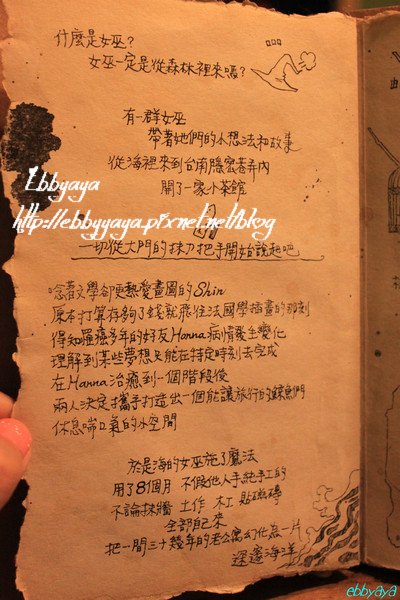 什麼是女巫?
女巫一定是從森林裡來嗎?
有一群女巫
帶著她們的小想法和故事
從海裡來到台南隱密巷弄內
開了一家小菜館
Ebbyaya
http://ebbyyaya.pixnet.net/blog
一切從大門的抹刀把手開始說起吧
唸著文學卻更熱愛畫圖的Shin
原本打算存夠了錢就飛往法國學插畫的那刻
得知罹癌多年的好友Hanna病情發生變化
理解到某些夢想只能在特定時刻去完成
在Hanna治癒到一個階段後
兩人決定攜手打造出一個能讓旅行的鯨魚們
休息喘口氣的小空間
於是海的女巫施了魔法
用了8個月 不假他人手純手工的
不論抹牆 土作 木工 貼磁磚
全部自己來
把一間三十幾年的老公寓幻化為一片
深邃海洋
ebbyaya